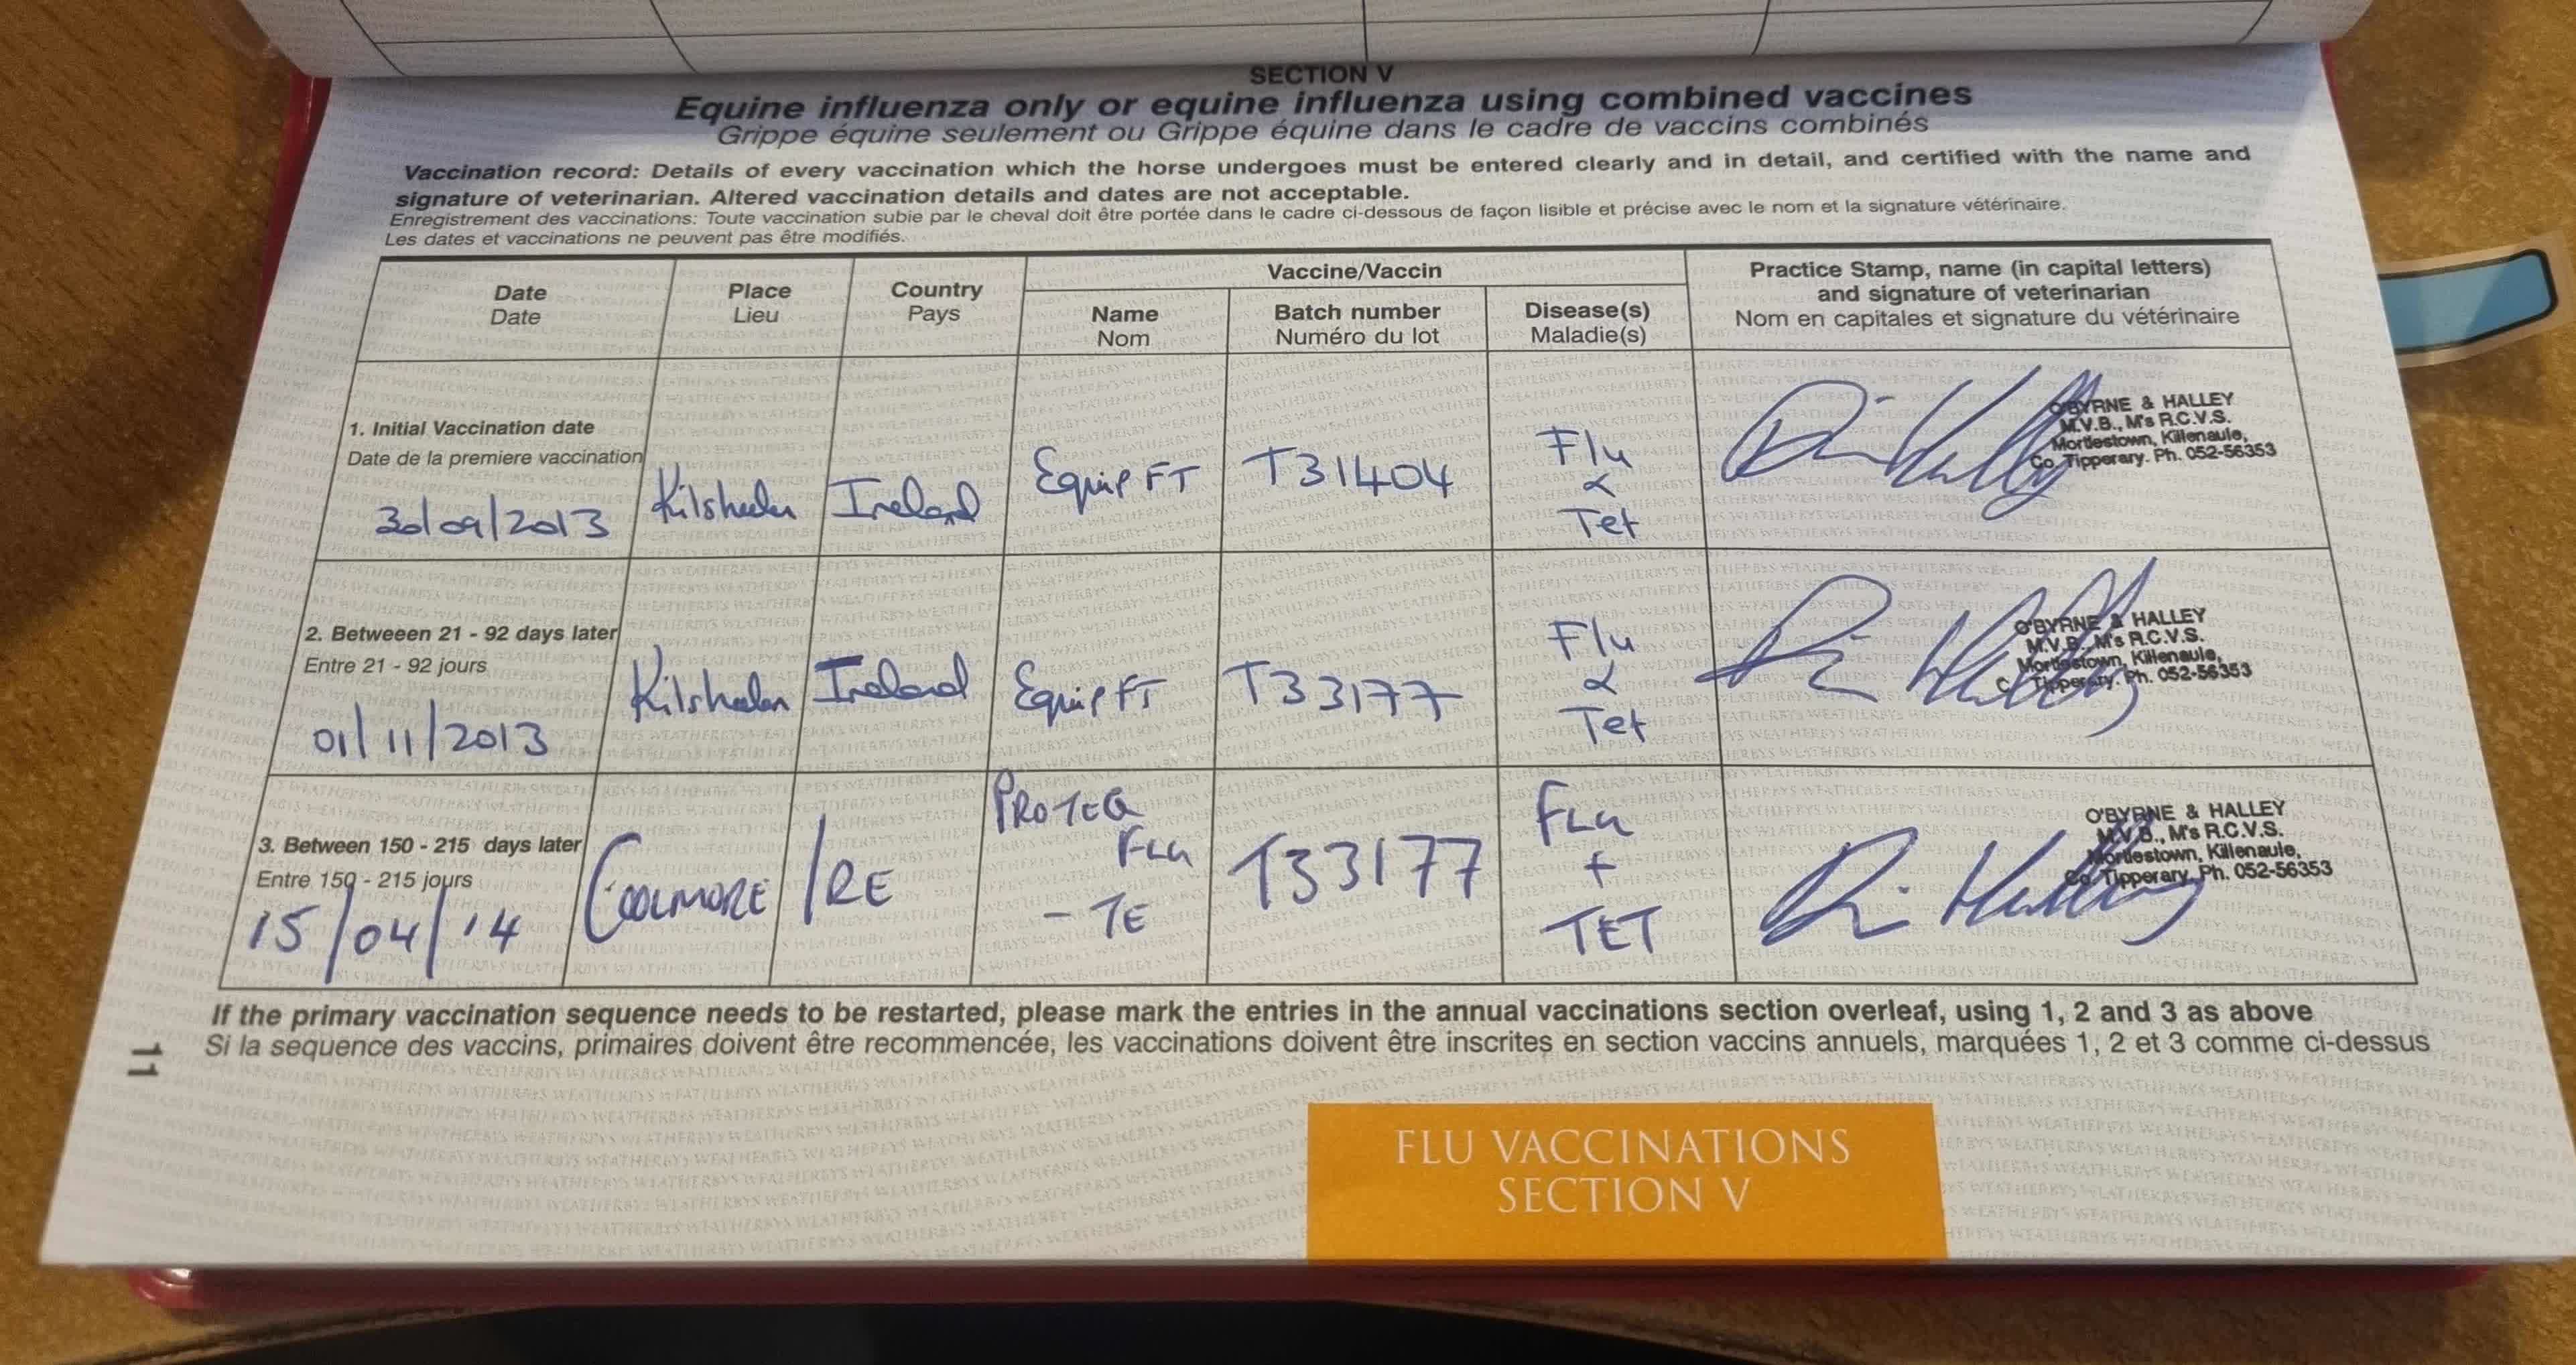 SECTION V
Equine influenza only or equine influenza using combined vaccines
Grippe équine seulement ou Grippe équine dans le cadre de vaccins combinés
Vaccination record: Details of every vaccination which the horse undergoes must be entered clearly and in detail, and certified with the name and
signature of veterinarian. Altered vaccination details and dates are not acceptable.
Enregistrement des vaccinations: Toute vaccination subie par le cheval doit être portée dans le cadre ci-dessous de façon lisible et précise avec le nom et la signature vétérinaire.
Les dates et vaccinations ne peuvent pas être modifiés.
Date
Date
Place
Lieu
Country
Pays
Vaccine/Vaccin
Name
Nom
Batch number
Numéro du lot
Disease(s)
Maladie(s)
Practice Stamp, name (in capital letters)
and signature of veterinarian
Nom en capitales et signature du vétérinaire
1. Initial Vaccination date
Date de la premiere vaccination
30/09/2013
Kilsheelan
Ireland
Equip FT
T31404
Flu
&
Tet
O'BYRNE & HALLEY
M.V.B., M's R.C.V.S.
Mortlestown, Killenaule,
Co. Tipperary. Ph. 052-56353
2. Betweeen 21 - 92 days later
Entre 21 - 92 jours
01/11/2013
Kilsheelan
Ireland
Equip FT
T33177
Flu
&
Tet
O'BYRNE & HALLEY
M.V.B., M's R.C.V.S.
Mortlestown, Killenaule,
Co. Tipperary. Ph. 052-56353
3. Between 150 - 215 days later
Entre 150 - 215 jours
15/04/'14
COOLMORE
IRE
PROTEQ
FLU
- TE
T33177
FLU
+
TET
O'BYRNE & HALLEY
M.V.B., M's R.C.V.S.
Mortlestown, Killenaule,
Co. Tipperary. Ph. 052-56353
If the primary vaccination sequence needs to be restarted, please mark the entries in the annual vaccinations section overleaf, using 1, 2 and 3 as above
Si la sequence des vaccins, primaires doivent être recommencée, les vaccinations doivent être inscrites en section vaccins annuels, marquées 1, 2 et 3 comme ci-dessus
11
FLU VACCINATIONS
SECTION V